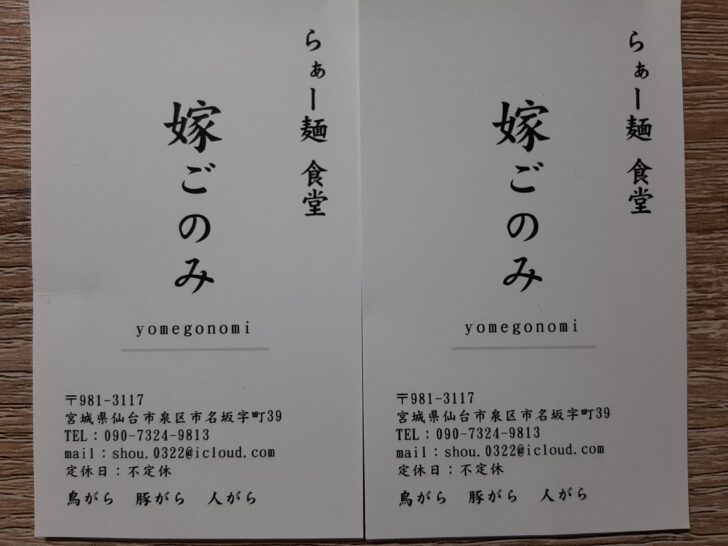 らぁー麺 食堂
嫁ごのみ
yomegonomi
〒981-3117
宮城県仙台市泉区市名坂字町39
TEL：090-7324-9813
mail：shou.0322@icloud.com
定休日：不定休
鳥がら 豚がら 人がら
らぁー麺 食堂
嫁ごのみ
yomegonomi
〒981-3117
宮城県仙台市泉区市名坂字町39
TEL：090-7324-9813
mail：shou.0322@icloud.com
定休日：不定休
鳥がら 豚がら 人がら